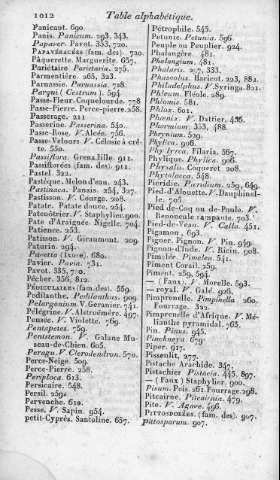 1012 Table alphabétique.
Panicaut. 690.
Panis. Panicum. 293, 343.
Papaver. Pavot. 333, 720.
PAPAVÉRACÉES (fam. des). 720.
Pâquerette. Marguerite. 657.
Pariétaire. Parietaria. 275.
Parmentière. 265, 323.
Parnassie. Parnassia. 728.
Parqui (Cestrum). 594.
Passe-Fleur. Coquelourde. 778
Passe-Pierre. Perce-pierre. 258.
Passerage. 211
Passerine. Passerina. 540.
Passe-Rose. V. Alcée. 756.
Passe-Velours V. Célosie à crête. 550.
Passiflora. Grenadille. 911.
Passiflorées (fam. des). 911.
Pastel. 322.
Pastèque. Melon d'eau. 243.
Pastinaca. Panais. 254, 327.
Pastisson. V. Courge. 208.
Patate. Patate douce. 254.
Patenôtrier. V. Staphylier. 900.
Pate d'Araignée. Nigelle. 704.
Patience. 253.
Patisson. V. Giraumont. 209.
Paturin. 294.
Pavetta (Ixore). 680.
Pavier. Pavia. 731.
Pavot. 335, 720.
Pêcher. 356, 812.
PÉDICULAIRES (fam. des). 559.
Pedilanthe. Pedilanthus. 909.
Pelargonium. V. Geranier. 741.
Pélégrine. V. Alstroemère. 497.
Pensée. V. Violette. 769.
Pentapetes. 759.
Pentstemon. V. Galane Museau-de-Chien. 605.
Peragu. V. Clerodendron. 570.
Perce-Neige. 509.
Perce-Pierre. 258.
Periploca. 613.
Persicaire. 548.
Persil. 259.
Pervenche. 610.
Pesse. V. Sapin. 954.
petit-Cyprès. Santoline. 657.
Pétrophile. 545.
Petunie. Petunia. 596.
Peuple ou Peuplier. 924.
Phalangère. 481.
Phalangium. 481.
Phalaris. 297, 333.
Phaseolus. Haricot. 223, 881.
Philadelphus. V. Syringa. 821.
Phleum. Fléole. 289.
Phlomis. 581.
Phlox. 601.
Phœnix. V. Dattier. 436.
Phormium. 333, 488.
Phrynium. 529.
Phylica. 906.
Phyllirea. Filaria. 567.
Phylique. Phylica. 906.
Physalis. Coqueret. 208
Phytolacca. 548.
Picridie. Picridium. 259, 649.
Pied-d'Alouette. V. Dauphinelle. 706.
Pied-de-Coq ou de-Poule. V. Renoncule rampante. 703.
Pied-de-Veau. V. Calla. 451.
Pigamon. 693.
Pignon. Pignon. V. Pin. 959.
Pignon-d'Inde. V. Ricin. 908.
Pimelée. Pimelea. 541.
Piment Corail. 259.
Piment. 259, 594.
— (Faux). V. Morelle. 593.
— royal. V. Galé. 926.
Pimprenelle. Pimpinella. 260.
Fourrage. 322.
Pimprenelle d'Afrique. V. Mélianthe pyramidal. 765.
Pin. Pinus. 945.
Pinckneya. 679.
Piper. 917.
Pissenlit. 277.
Pistache Arachide. 357.
Pistachier Pistacia. 445, 897.
— (Faux) Staphylier. 900.
Pisum. Pois. 261. Fourrage. 298.
Pitcairne. Pitcairnia. 479.
Pite. V. Agave. 496.
PITTOSPORÉES. (fam. des). 907.
Pittosporum. 907.